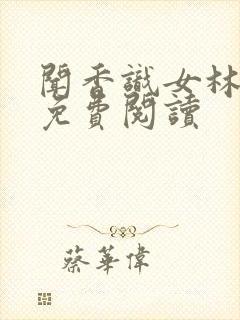 聞香識女林
免費閱讀
蔡華偉